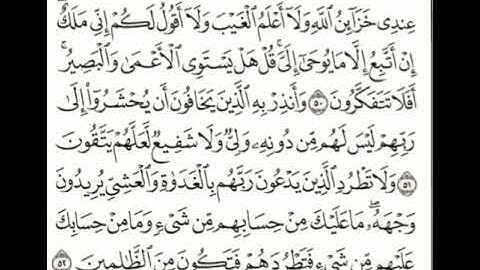 عِندِى خَزَآئِنُ ٱللَّهِ وَلَآ أَعْلَمُ ٱلْغَيْبَ وَلَآ أَقُولُ لَكُمْ إِنِّى مَلَكٌ
إِنْ أَتَّبِعُ إِلَّا مَا يُوحَىٰٓ إِلَىَّ ۚ قُلْ هَلْ يَسْتَوِى ٱلْأَعْمَىٰ وَٱلْبَصِيرُ ۚ
أَفَلَا تَتَفَكَّرُونَ ٥٠ وَأَنذِرْ بِهِ ٱلَّذِينَ يَخَافُونَ أَن يُحْشَرُوٓا۟ إِلَىٰ
رَبِّهِمْ ۙ لَيْسَ لَهُم مِّن دُونِهِۦ وَلِىٌّ وَلَا شَفِيعٌ لَّعَلَّهُمْ يَتَّقُونَ
٥١ وَلَا تَطْرُدِ ٱلَّذِينَ يَدْعُونَ رَبَّهُم بِٱلْغَدَوٰةِ وَٱلْعَشِىِّ يُرِيدُونَ
وَجْهَهُۥ ۖ مَا عَلَيْكَ مِنْ حِسَابِهِم مِّن شَىْءٍ وَمَا مِنْ حِسَابِكَ
عَلَيْهِم مِّن شَىْءٍ فَتَطْرُدَهُمْ فَتَكُونَ مِنَ ٱلظَّـٰلِمِينَ ٥٢